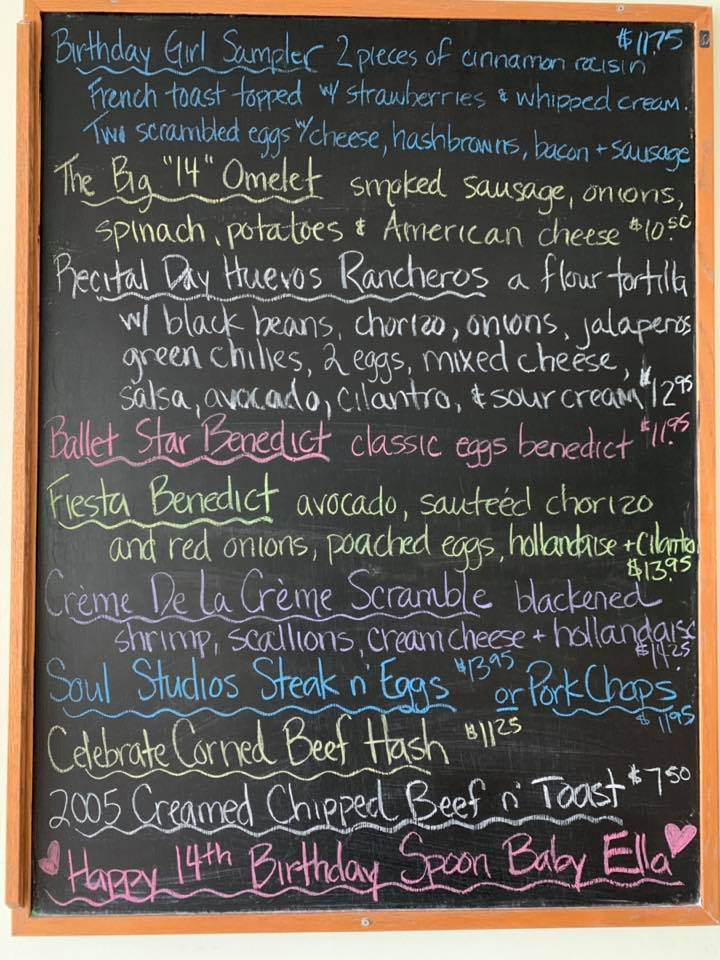 Birthday Girl Sampler 2 pieces of cinnamon raisin $11.75
French toast topped w/ strawberries & whipped cream.
Two scrambled eggs w/cheese, hashbrowns, bacon + sausage
The Big "14" Omelet smoked sausage, onions,
spinach, potatoes & American cheese $10.50
Recital Day Huevos Rancheros a flour tortilla
w/ black beans, chorizo, onions, jalapeños
green chilies, 2 eggs, mixed cheese,
salsa, avocado, cilantro, & sour cream $12.95
Ballet Star Benedict classic eggs benedict $11.95
Fiesta Benedict avocado, sauteéd chorizo
and red onions, poached eggs, hollandaise + cilantro
$13.95
Crème De La Crème Scramble blackened
shrimp, scallions, cream cheese + hollandaise
Soul Studios Steak n' Eggs $13.95 or Pork Chops
$11.95
Celebrate Corned Beef Hash $11.25
2005 Creamed Chipped Beef n' Toast $7.50
Happy 14th Birthday Spoon Baby Ella